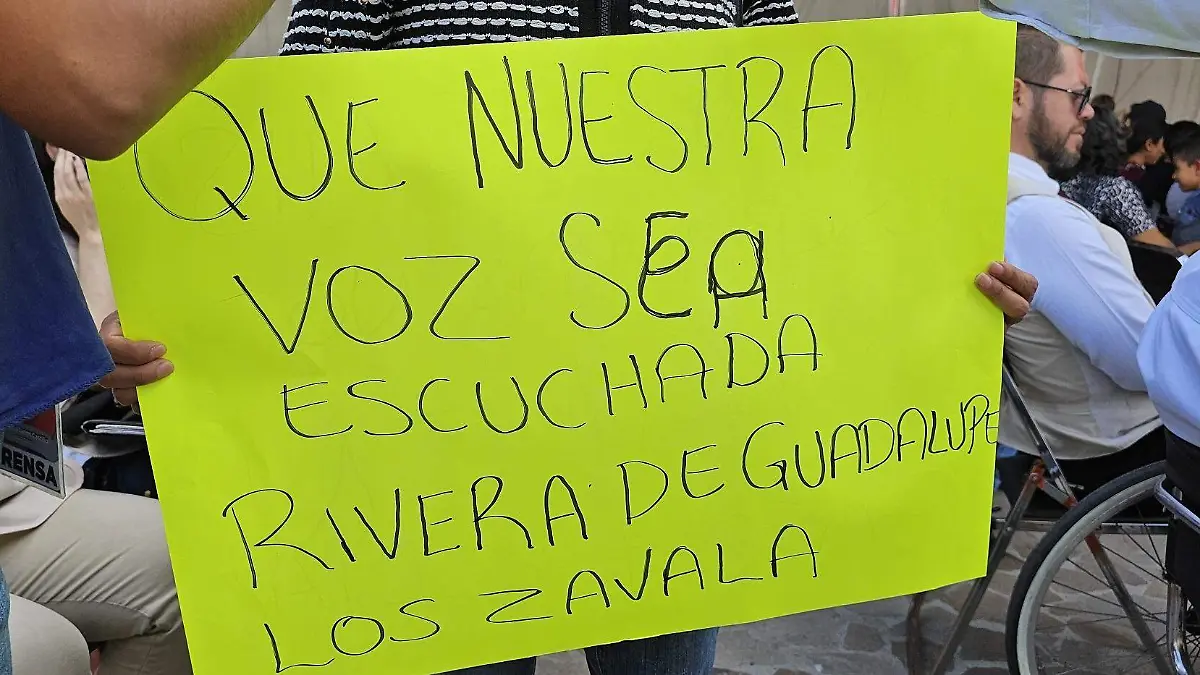 QUE NUESTRA
VOZ SEA
ESCUCHADA
RIVERA DE GUADALUPE
LOS ZAVALA
RENSA